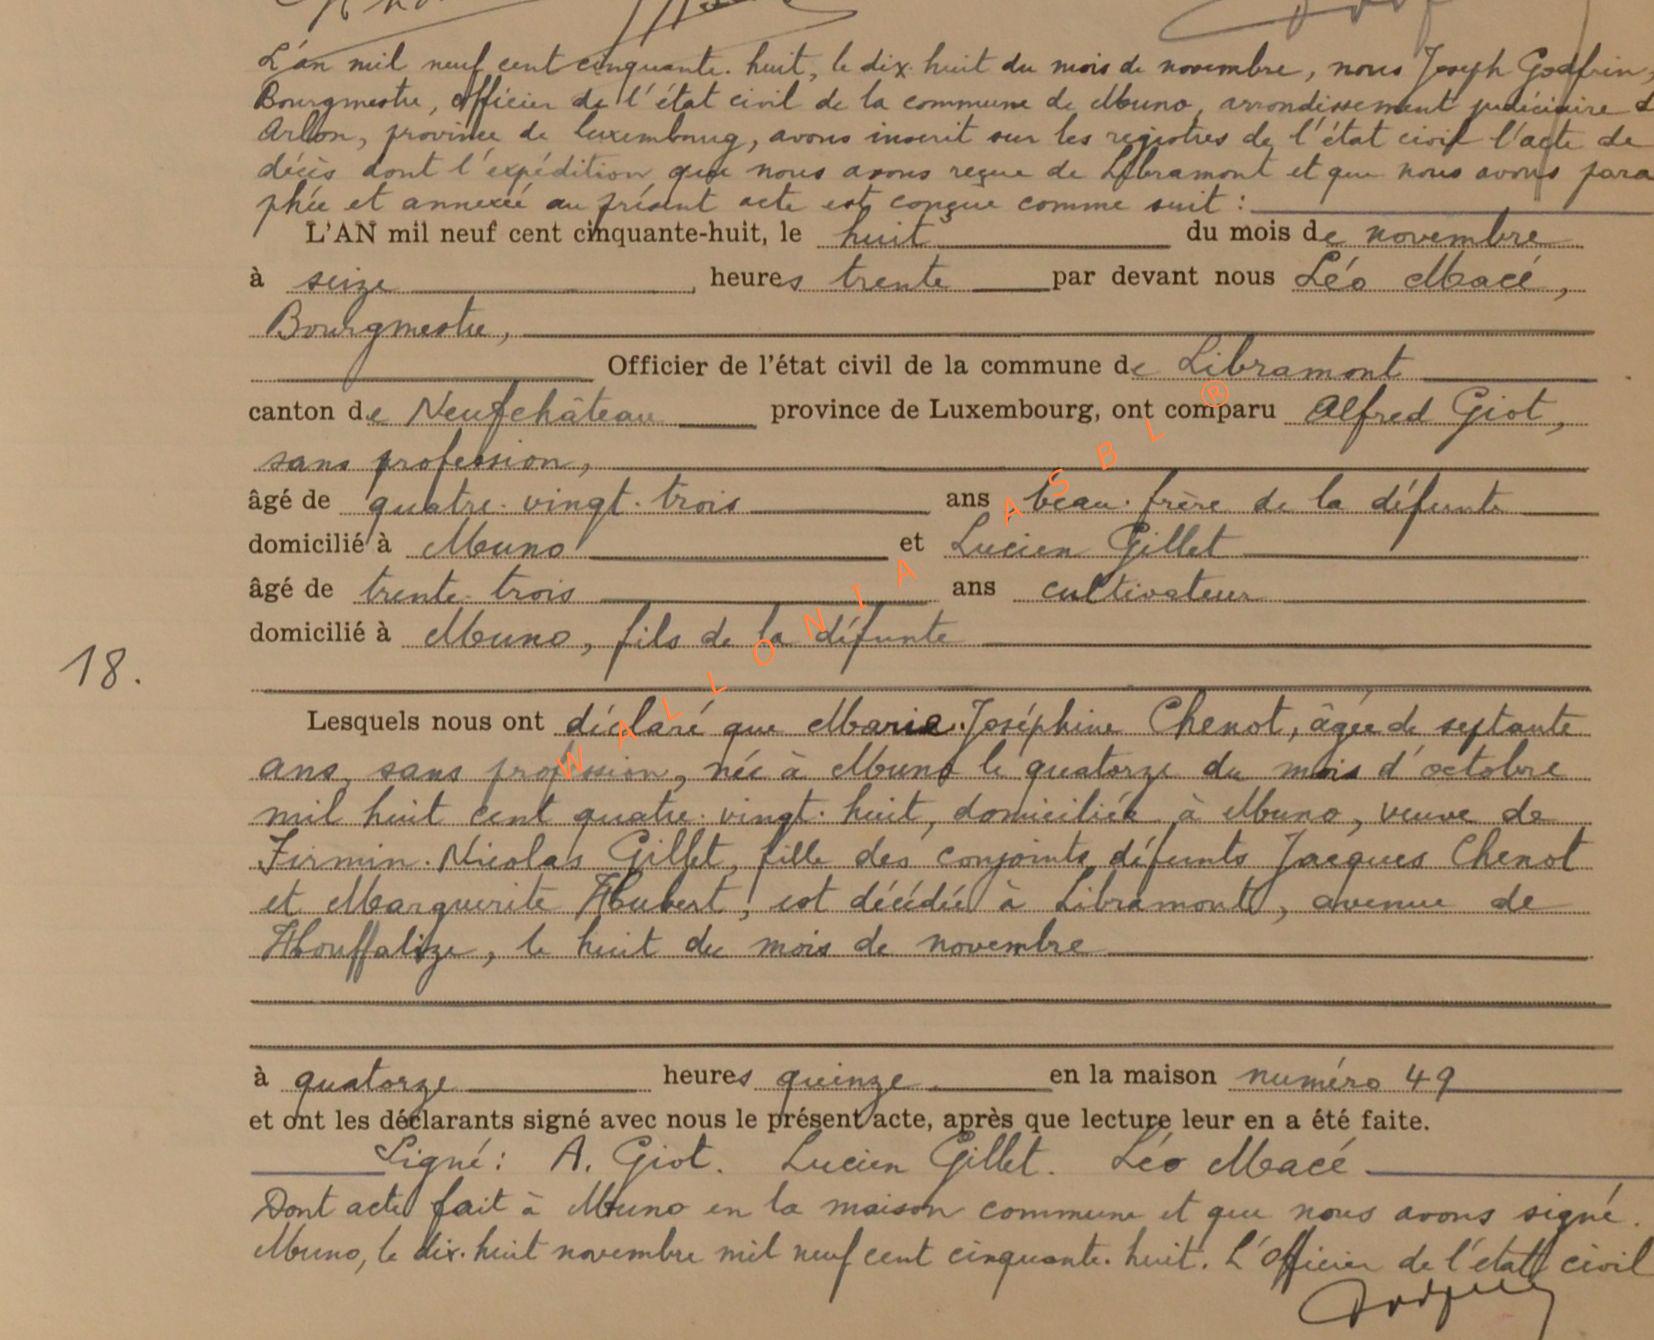 L'an mil neuf cent cinquante-huit, le dix-huit du mois de novembre, nous Joseph Godfrin,
Bourgmestre, officier de l'état civil de la commune de Muno, arrondissement judiciaire d
Arlon, province de Luxembourg, avons inscrit sur les registres de l'état civil l'acte de
décès dont l'expédition que nous avons reçue de Libramont et que nous avons para
phée et annexée au présent acte est conçue comme suit :
L'AN mil neuf cent cinquante-huit, le huit du mois de novembre
à seize heures trente par devant nous Léo Macé,
Bourgmestre,
Officier de l'état civil de la commune de Libramont
canton de Neufchâteau province de Luxembourg, ont comparu Alfred Giot,
sans profession,
âgé de quatre-vingt-trois ans beau-frère de la défunte
domicilié à Muno et Lucien Gillet
âgé de trente-trois ans cultivateur
domicilié à Muno, fils de la défunte
18.
Lesquels nous ont déclaré que Marie-Joséphine Chenot, âgée de septante
ans, sans profession, née à Muno le quatorze du mois d'octobre
mil huit cent quatre-vingt-huit, domiciliée à Muno, veuve de
Firmin-Nicolas Gillet, fille des conjoints défunts Jacques Chenot
et Marguerite Hubert, est décédée à Libramont, avenue de
Houffalize, le huit du mois de novembre
à quatorze heures quinze en la maison numéro 49
et ont les déclarants signé avec nous le présent acte, après que lecture leur en a été faite.
Signé : A. Giot. Lucien Gillet. Léo Macé
Dont acte fait à Muno en la maison commune et que nous avons signé.
Muno, le dix-huit novembre mil neuf cent cinquante-huit. L'officier de l'état civil
WALLONIA ASBL ®